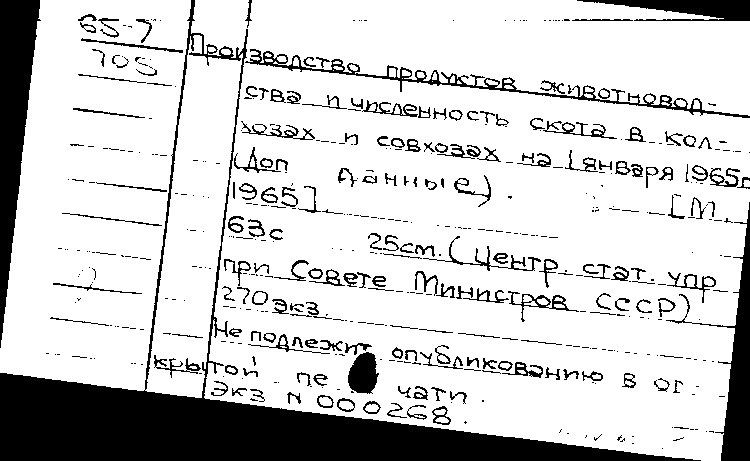 65-7
705
Производство продуктов животновод-
ства и численность скота в кол-
хозах и совхозах на 1 января 1965г
(Доп данные). [М.
1965].
63с 25см. (Центр. стат. упр
при Совете Министров СССР)
270 экз.
Не подлежит опубликованию в от
крытой пе чати.
Экз N 000268.